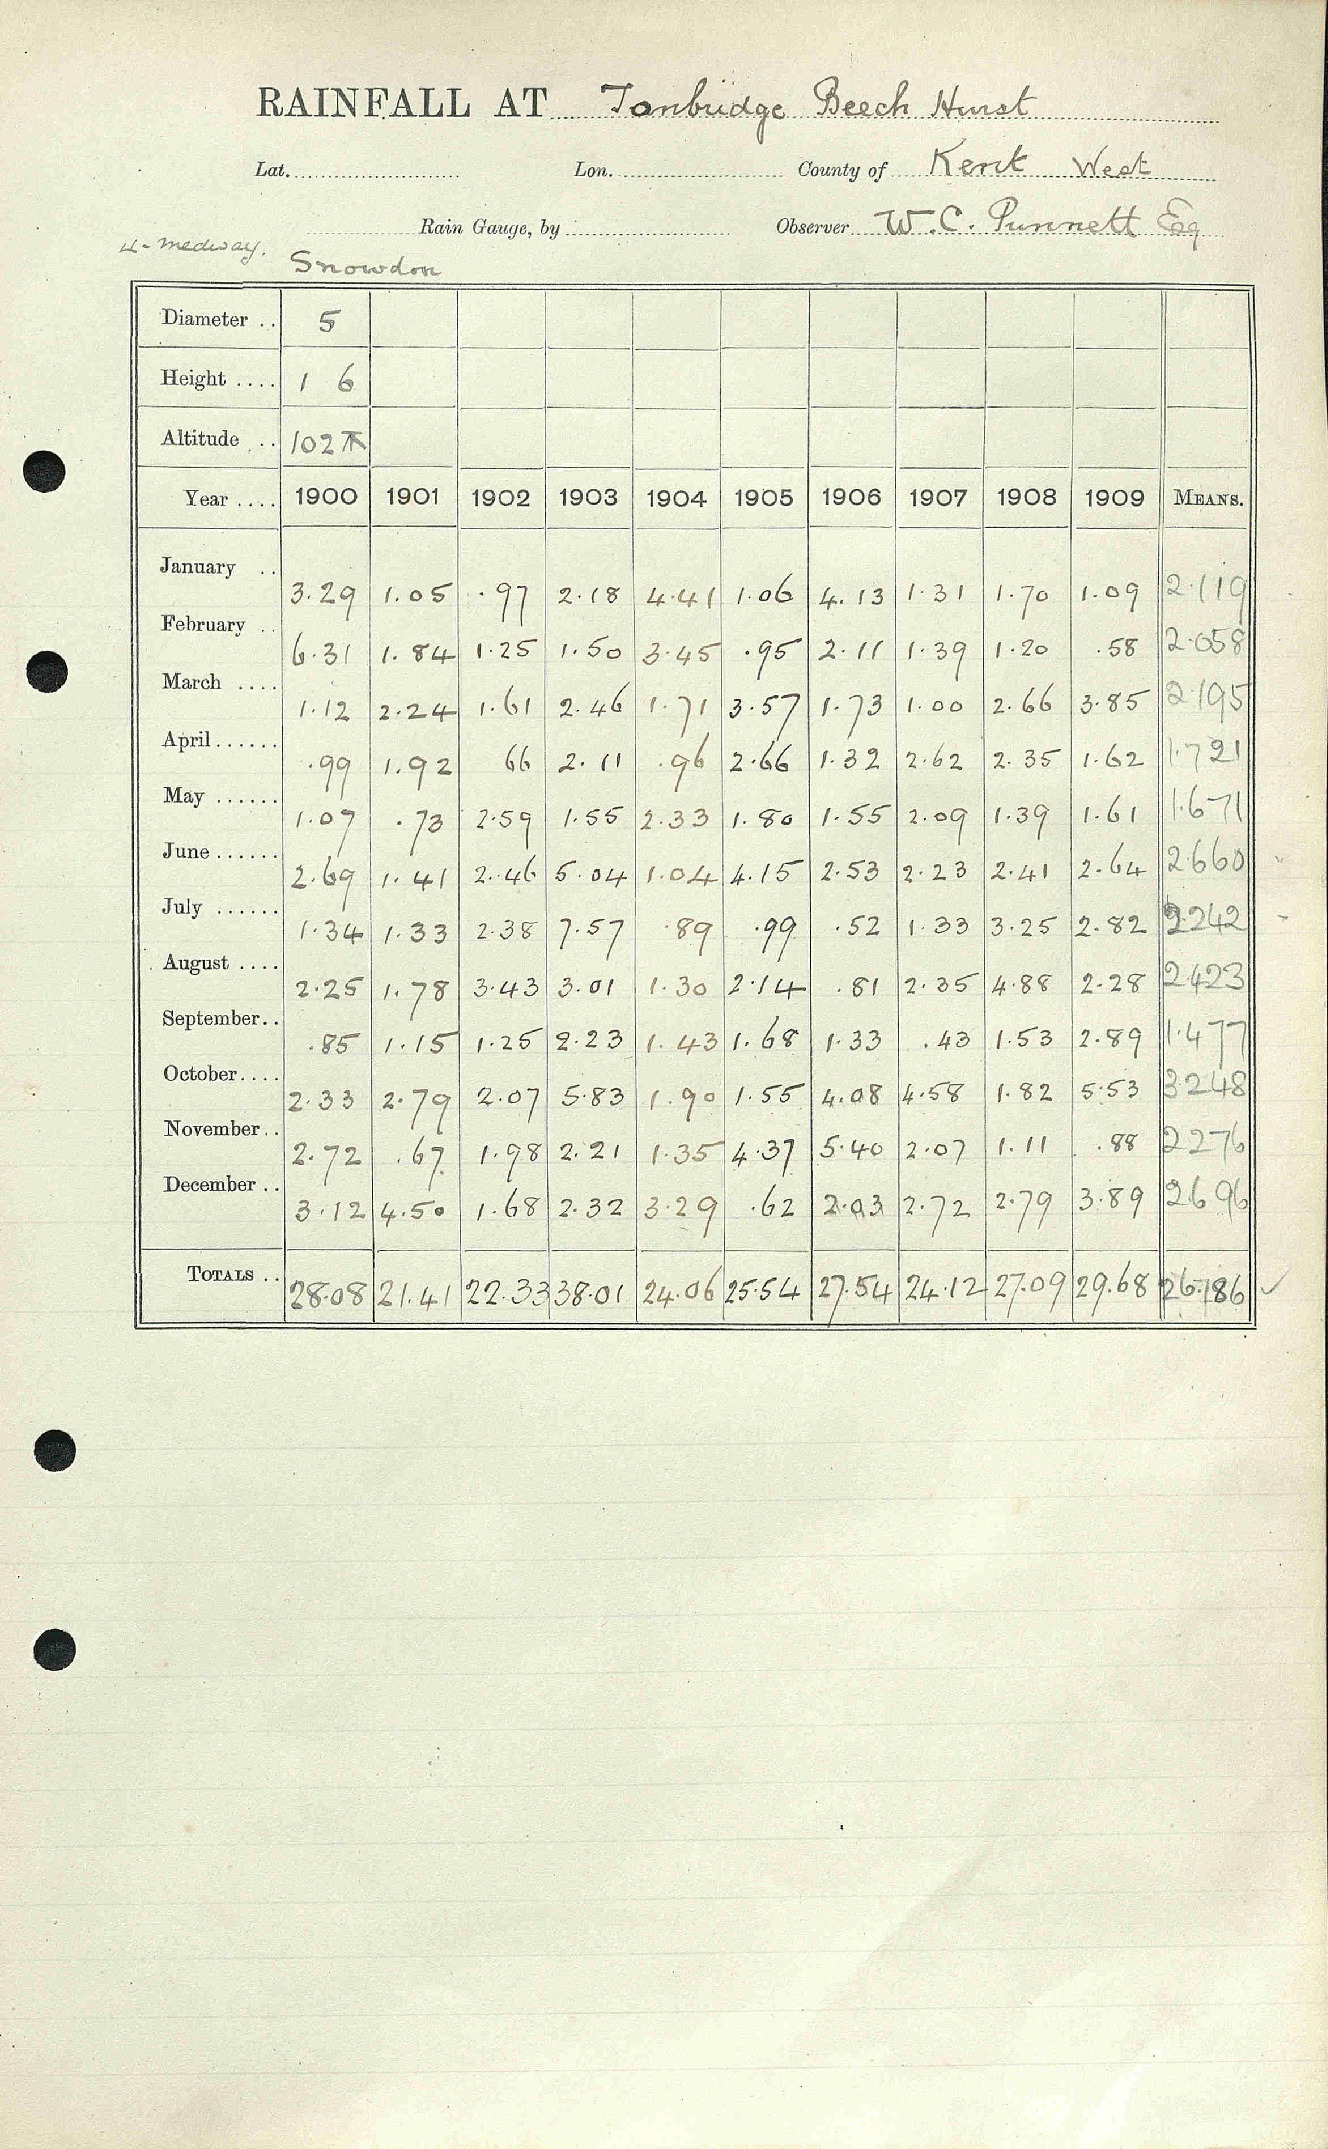 RAINFALL AT Tonbridge Beech Hurst
Lat. Lon. County of Kent West
Rain Gauge, by Observer W. C. Punnett Esq
4 - Medway. Snowdon
Diameter .. 5
Height .... 1 6
Altitude .. 102
Year .... 1900 1901 1902 1903 1904 1905 1906 1907 1908 1909 MEANS.
January .. 3.29 1.05 .97 2.18 4.41 1.06 4.13 1.31 1.70 1.09 2.119
February .. 6.31 1.84 1.25 1.50 3.45 .95 2.11 1.39 1.20 .58 2.058
March .... 1.12 2.24 1.61 2.46 1.71 3.57 1.73 1.00 2.66 3.85 2.195
April...... .99 1.92 66 2.11 .96 2.66 1.32 2.62 2.35 1.62 1.721
May ...... 1.07 .73 2.59 1.55 2.33 1.80 1.55 2.09 1.39 1.61 1.671
June...... 2.69 1.41 2.46 5.04 1.04 4.15 2.53 2.23 2.41 2.64 2.660
July ...... 1.34 1.33 2.38 7.57 .89 .99 .52 1.33 3.25 2.82 2.242
August .... 2.25 1.78 3.43 3.01 1.30 2.14 .81 2.35 4.88 2.28 2.423
September.. .85 1.15 1.25 2.23 1.43 1.68 1.33 .43 1.53 2.89 1.477
October.... 2.33 2.79 2.07 5.83 1.90 1.55 4.08 4.58 1.82 5.53 3248
November.. 2.72 .67 1.98 2.21 1.35 4.37 5.40 2.07 1.11 .88 2276
December .. 3.12 4.50 1.68 2.32 3.29 .62 2.03 2.72 2.79 3.89 2696
TOTALS .. 28.08 21.41 22.33 38.01 24.06 25.54 27.54 24.12 27.09 29.68 26.186 ✓